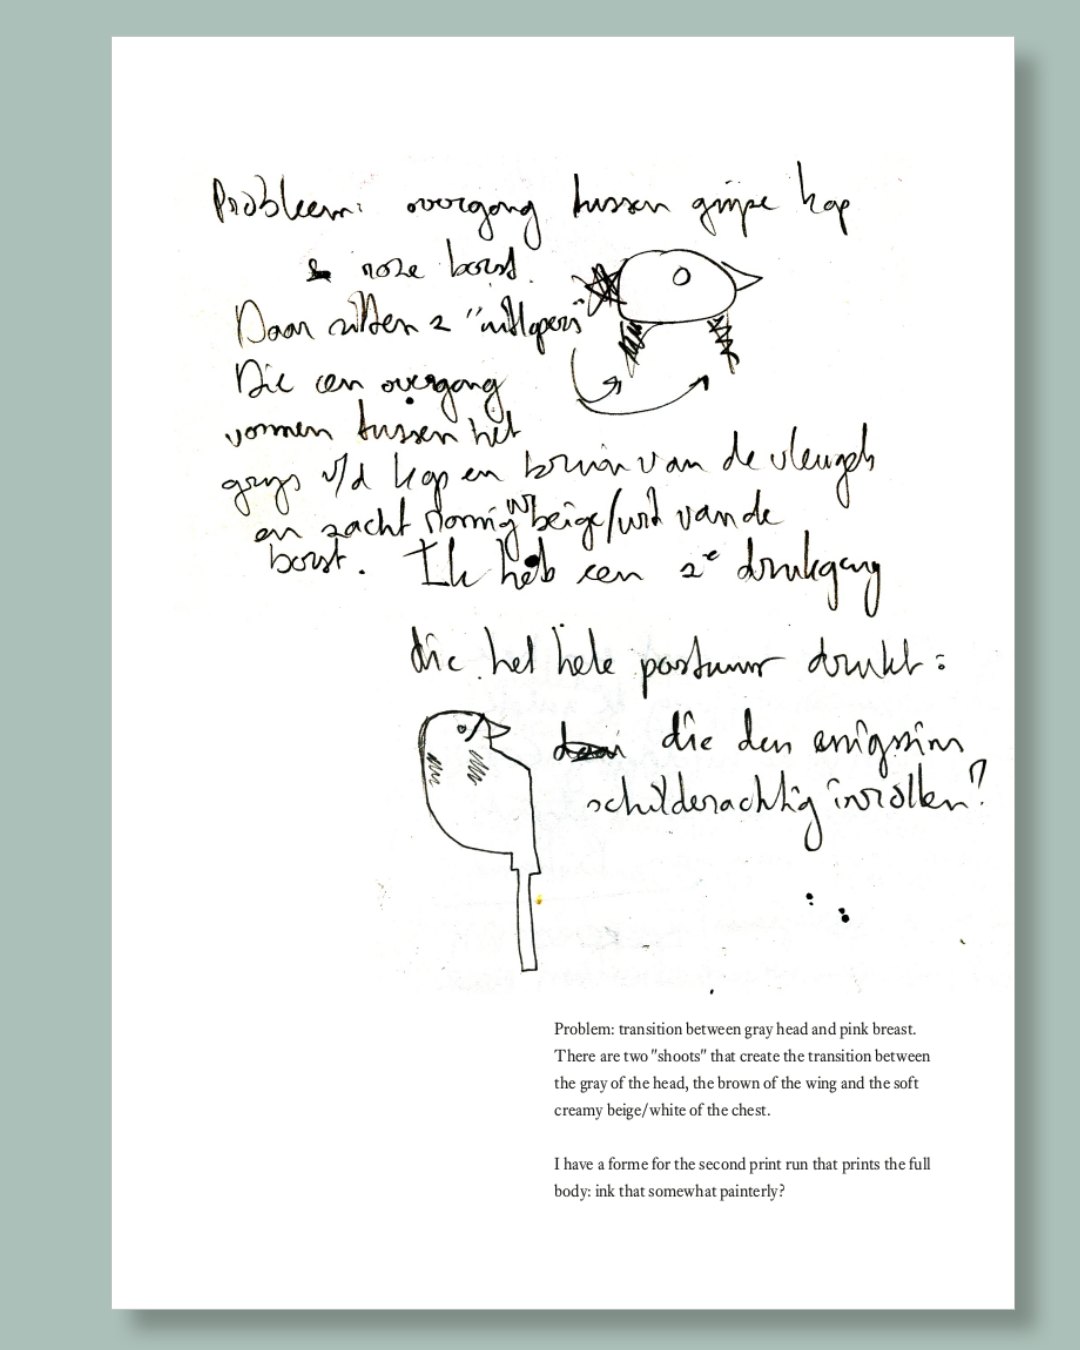 Probleem: overgang tussen grijze kop
& roze borst.
Daar zitten 2 "uitlopers"
Die een overgang
vormen tussen het
grijs v/d kop en bruin van de vleugels
en zacht romig beige/wit van de
borst. Ik heb een 2e drukgang
die het hele postuur drukt:
die den enigszins
schilderachtig inrollen?
Problem: transition between gray head and pink breast.
There are two "shoots" that create the transition between
the gray of the head, the brown of the wing and the soft
creamy beige/white of the chest.
I have a forme for the second print run that prints the full
body: ink that somewhat painterly?